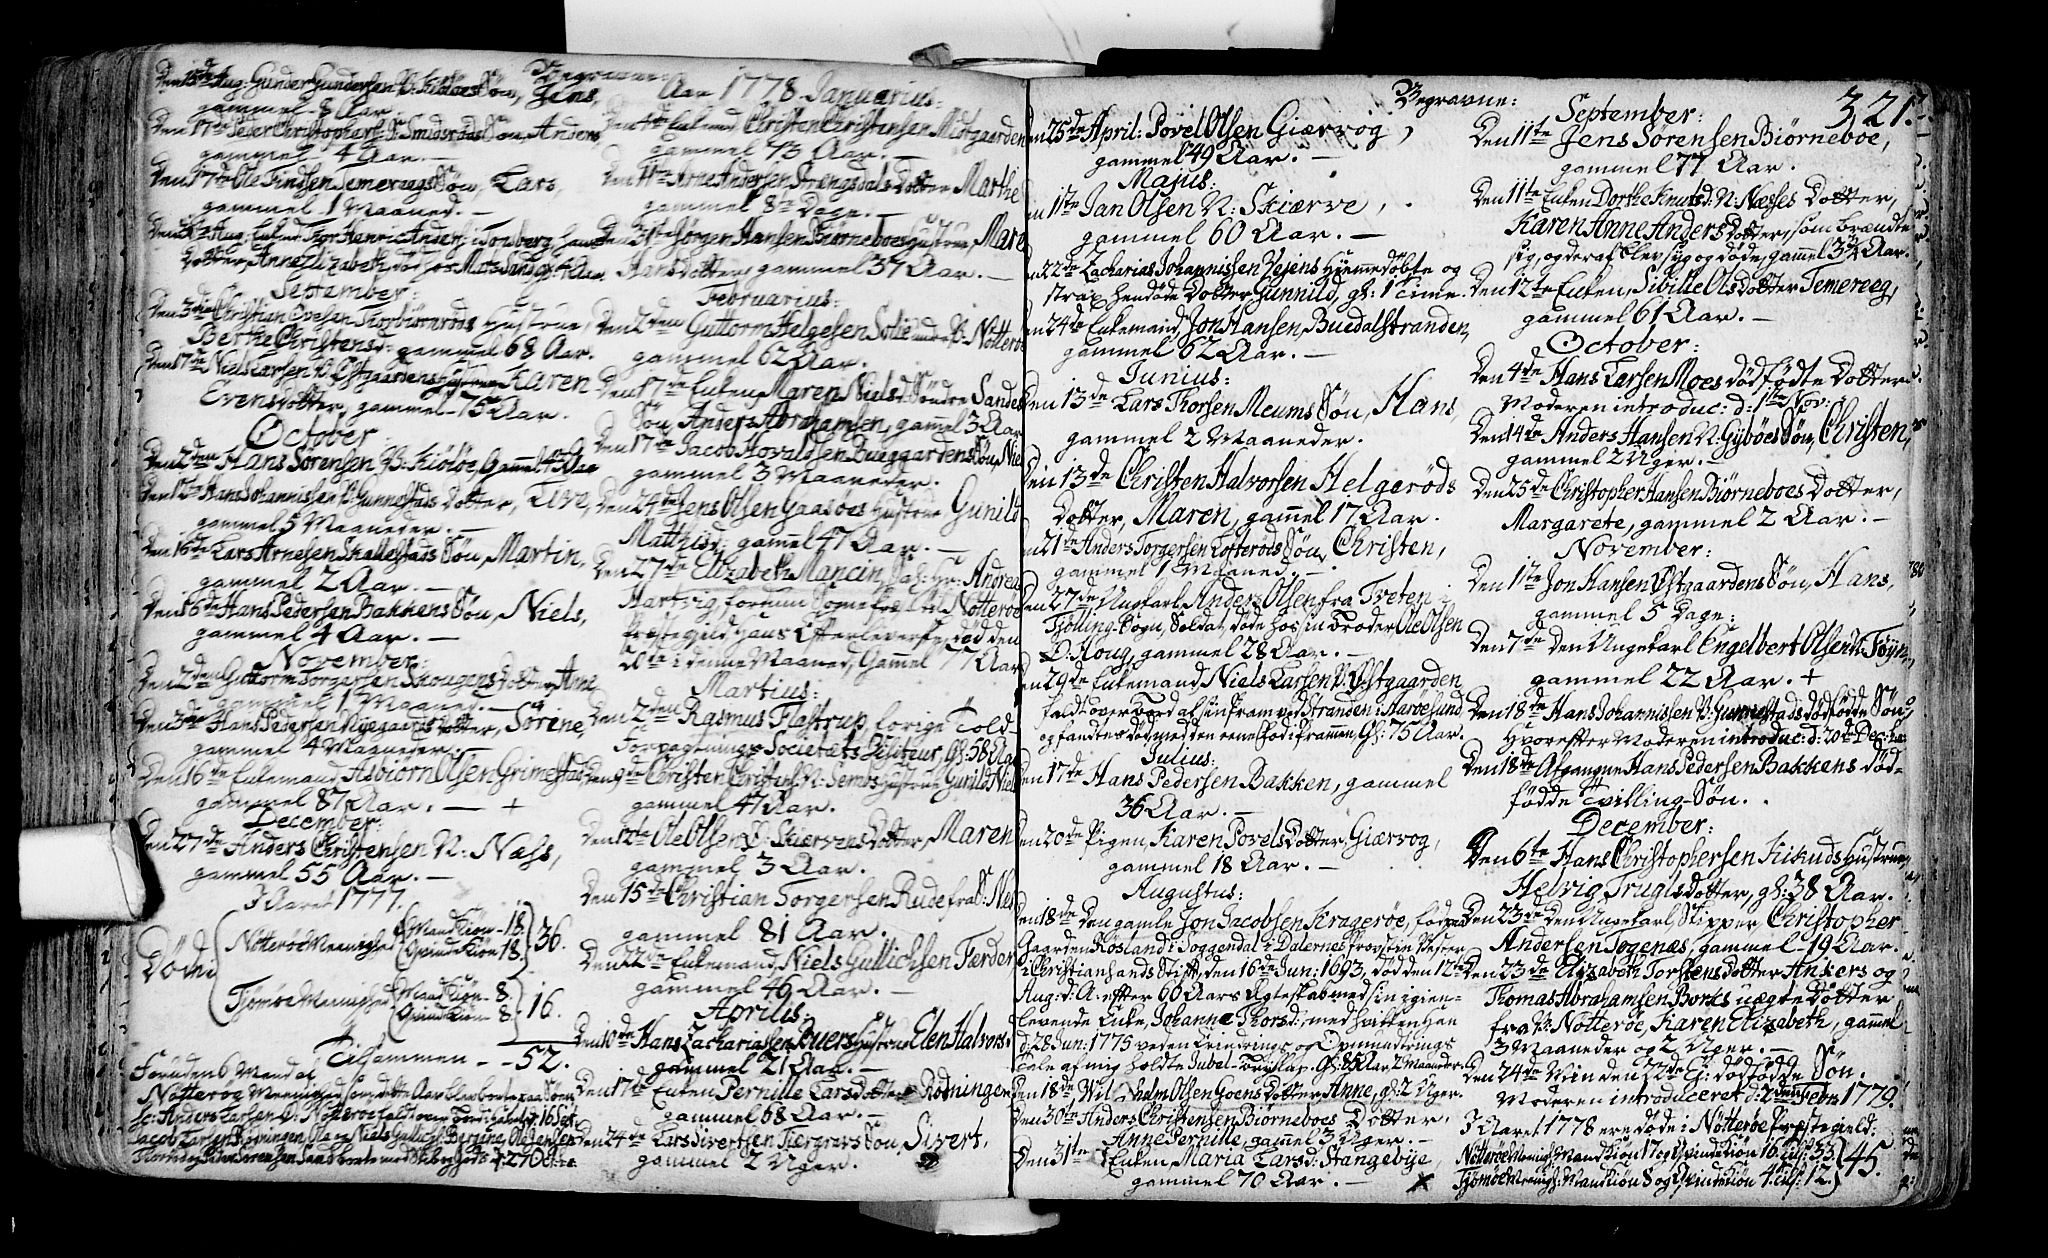 Begravne:
Den 15de Aug: Gunder Gundersen N: Kiøløes Søn, Jens,
gammel 8 Aar
Den 17de Peder Christophers: S: Smidsrøds Søn, Anders
gammel 4 Aar. —
Den 17de Ole Findsen Temereegs Søn, Lars,
gammel 1 Maaned. —
Dotter, Anne Elizabeth
September:
Den 3die Christian Evesen Thorbiørnrøds Hustrue,
Berthe Christensd: gammel 68 Aar.
Den 17de Niels Larsen N: Østgaardens Hustrue Karen
Evensdotter, gammel 75 Aar.
October:
Den 2den Hans Sørensen N: Kiøløe, Gammel
Den 12te Hans Johannissen N: Gunnestads Dotter, Live,
gammel 5 Maaneder. —
Den 16de Lars Arnesen Skallestads Søn, Martin,
gammel 2 Aar. —
Den 16de Hans Pedersen Bakkens Søn, Niels,
gammel 4 Aar. —
November:
Den 2den Guttorm Torgersen Skougens Dotter Anne
gammel 1 Maaned. —
Den 3die Hans Pedersen Nyegaards Dotter, Sørine,
gammel 4 Maaneder. —
Den 16de Enkemand Asbiørn Olsen Grimestad,
gammel 87 Aar. — +
December:
Den 27de Anders Christensen N: Næss,
gammel 55 Aar. —
I Aaret 1777.
Døde i Nøtterøe Meenighed Mandkiøn - 18. Qvindekiøn 18. 36.
Tjømøe Meenighed Mandkiøn - 8. Qvindekiøn 8. 16.
Tilsammen - - 52.
Foruden 6 Mænd af
Nøtterøe Meenighed som dette Aar bleve borte paa Søen
Aar 1778. Januarius:
Den 4de Enkemd Christen Christensen Midtgaarden
gammel 73 Aar. —
Den 11te Arne Andersen Strengsdals Dotter, Marthe
gammel 8te Dage. —
Den 31te Jørgen Hansen Biørneboes Hustrue, Maren
Hansdotter, gammel 37 Aar. —
Februarius:
Den 2den Guttorm Helgesen Solie N: Nøtterøe
gammel 62 Aar.
Den 17de Enken Maren Nielsd: Søndre Sandes
Søn, Anders Abrahamsen, gammel 3 Aar
Den 17de Jacob Hovaldsen Bueggaardens Søn, Niels
gammel 3 Maaneder.
Den 24de Jens Olsen Gaasøes Hustrue Gunild
Matthisd: gammel 47 Aar. —
Den 27de Elizabeth Mancin, Sal: Hr: Andreas
Hartvig, fordum Sognepræst til Nøtterøe
Præstegield, hans Efterleverske, død den
20de i denne Maaned, Gammel 77 Aar
Martius:
Den 2den Rasmus Flastrup, forige Told-
Forpagtnings Societæts Visiteur, Gl: 58 Aar
Den 9de Christen Christens: N: Sembs Hustrue Gunild Niels
gammel 47 Aar.
Den 12te Ole Olsen Ø: Skierves Dotter, Maren
gammel 3 Aar.
Den 15de Christian Torgersen Rude fra S: Næs
gammel 81 Aar.
Den 22de Enkemand, Niels Gullichsen Færder
gammel 46 Aar. —
Aprilis:
Den 10de Hans Zachariassen Buers Hustrue Elen Halvorsd:
gammel 21 Aar. —
Den 17de Enken Pernille Larsdotter Rødningen
gammel 68 Aar. —
Den 24de Lars Sivertsen Fiergrars Søn, Sivert,
gammel 2 Uger. —
Begravne:
321.
Den 25de April: Povel Olsen Giærvog,
gammel 49 Aar. —
Majus:
Den 1te Jan Olsen N: Skiærve,
gammel 60 Aar. —
Den 22de Zacharias Johannissen Vejens hiemmedøbte og
strax hendøde Dotter Gunnild, gl: 1 Time.
Den 24de Enkemand, Jon Hansen, Buedalstranden,
gammel 62 Aar. —
Junius:
Den 13de Lars Thorsen Meums Søn, Hans,
gammel 2 Maaneder.
Den 13de Christen Halvorsen Helgerøds
Dotter, Maren, gammel 17 Aar.
Den 21de Anders Torgersen Lofterøds Søn, Christen,
gammel 1 Maaned. —
Den 27de Ungkarl Anders Olsen fra Tveten i
Tjølling Sogn, Soldat, døde hos sin Broder Ole Olsen
Ø: Roug, gammel 28 Aar. —
Den 29de Enkemand, Niels Larsen N: Østgaarden
faldt over Bord af sin Pram ved Stranden i Aarøesund
og fandtes død med den eene Fod i Prammen, Gl: 75 Aar.
Julius:
Den 17de Hans Pedersen Bakken, gammel
36 Aar. —
Den 20de Pigen, Karen Povels Dotter, Giærvog,
gammel 18 Aar. —
Augustus:
Den 18de den gamle Jon Jacobsen Kragerøe, født paa
Gaarden Rosland i Soggendal i Dalernes Provstie
i Christiansands Stift, den 16de Jun: 1693, død den 12te
Aug: d: A: efter 60 Aars Ægteskab med sin igien-
levende Enke, Johanne Thorsd:, med hvilken han
d: 28 Jun: 1775 ved en Erindrings og Opmuntrings
Tale af mig holdte Jubel-Bryllup. Gl: 85 Aar 2 Maaneder.
Den 18de Wilhelm Olsen Goens Dotter Anne, gl: 2 Uger.
Den 30te Anders Christensen Biørneboes Dotter,
Anne Pernille, gammel 3 Uger. —
Den 31te Enken Maria Larsd: Stangebye,
gammel 70 Aar. —
September:
Den 11te Jens Sørensen Biørneboe,
gammel 77 Aar.
Den 11te Enken Dorthe Knutsd: N: Næsses Dotter,
Karen Anne Andersdotter, som brændte
sig, og deraf blev syg og døde, gammel 3 3/4 Aar.
Den 12te Enken, Sibille Olsdotter Temereeg,
gammel 61 Aar. —
October:
Den 4de Hans Larsen Moes dødfødte Dotter
Moderen introduc: d: 1te Nov:
Den 14de Anders Hansen N: Gybøes Søn, Christen,
gammel 2 Uger. —
Den 25de Christopher Hansen Biørneboes Dotter,
Margarete, gammel 2 Aar. —
November:
Den 1te Jon Hansen Østgaardens Søn, Hans,
gammel 5 Dage:
Den 7de den Ungekarl Engelbert Olsen N: Tøyn,
gammel 22 Aar. +
Den 18de Hans Johannissen N: Gunnestads dødfødde Søn,
Hvorefter Moderen introduc: d: 20de Dec:
Den 18de Afgangne Hans Pedersen Bakkens død-
fødde Tvilling-Søn.
December:
Den 6te Hans Christophersen Kikuds Hustrue,
Helvig Trugelsdotter, gl: 38 Aar.
Den 23de den Ungekarl Skipper Christopher
Andersen Togenæs, gammel 19 Aar.
Den 23de Elizabeth Torstensdotter Ankers og
Thomas Abrahamsen Borks uægte Dotter
fra N: Nøtterøe, Karen Elizabeth, gammel
3 Maaneder og 2 Uger. —
Den 24de Min den 22de Ej: dødfødde Søn.
Moderen introduceret d: 2den Febr: 1779.
I Aaret 1778 ere døde i Nøtterøe Præstegield:
Nøtterøe Meenigh: Mandkiøn 17 og Qvindekiøn 16. tils: 33.
Tjømøe Meenigh: Mandkiøn 8 og Qvindekiøn 4. tils: 12. 45.